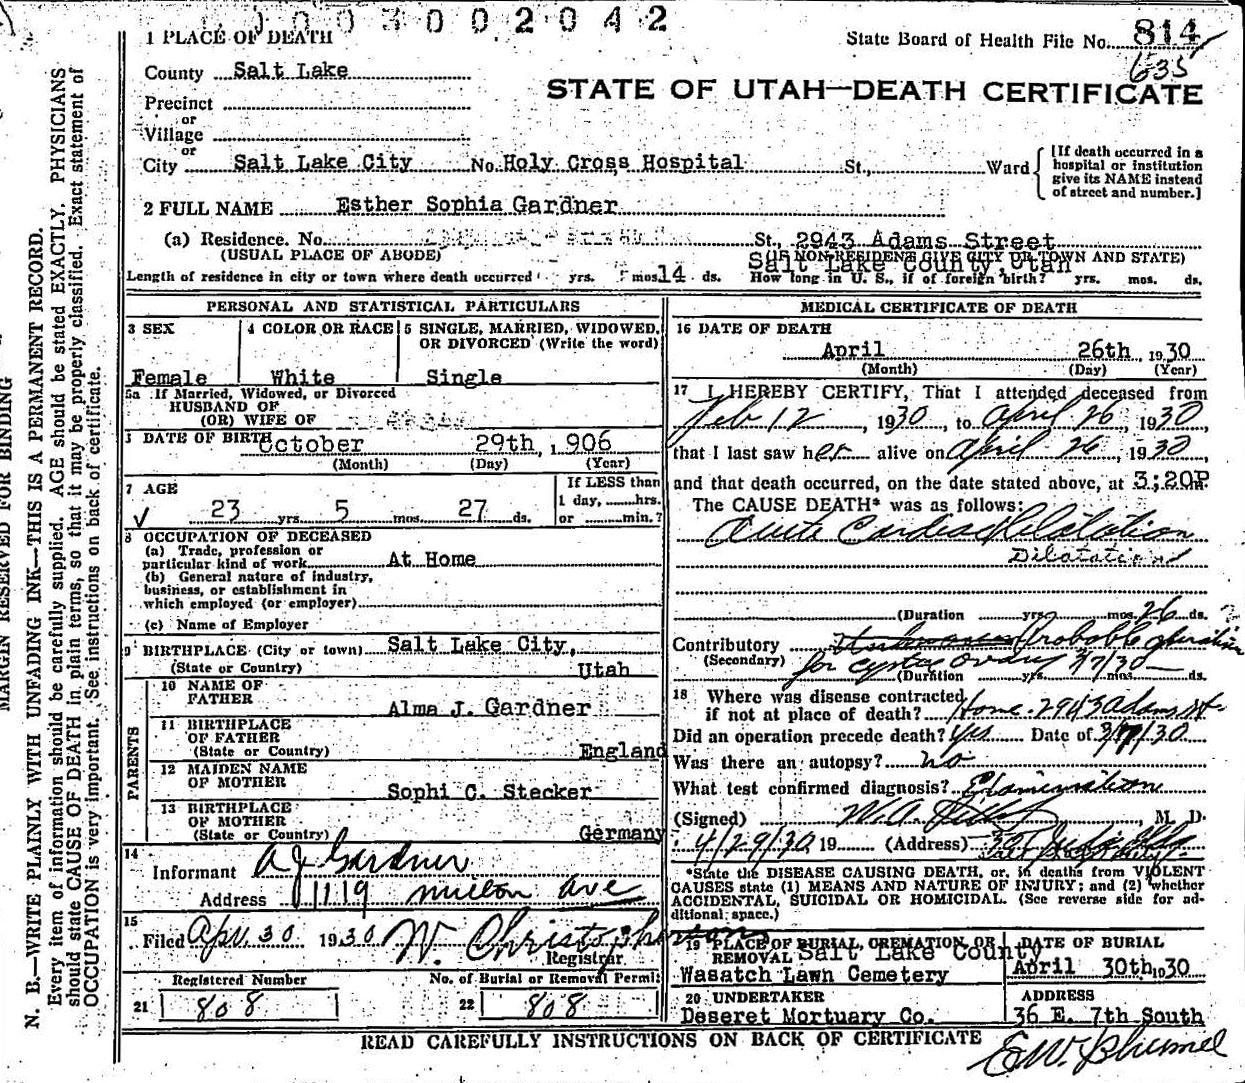 0003002042
1 PLACE OF DEATH
State Board of Health File No. 814
635
County Salt Lake
STATE OF UTAH—DEATH CERTIFICATE
Precinct
or
Village
or
City Salt Lake City No. Holy Cross Hospital St., Ward
[If death occurred in a hospital or institution give its NAME instead of street and number.]
2 FULL NAME Esther Sophia Gardner
(a) Residence. No. St., 2943 Adams Street
(USUAL PLACE OF ABODE) (IF NON-RESIDENT GIVE CITY OR TOWN AND STATE)
Salt Lake County, Utah
Length of residence in city or town where death occurred yrs. mos. 14 ds. How long in U. S., if of foreign birth? yrs. mos. ds.
PERSONAL AND STATISTICAL PARTICULARS
3 SEX
Female
4 COLOR OR RACE
White
5 SINGLE, MARRIED, WIDOWED, OR DIVORCED (Write the word)
Single
5a If Married, Widowed, or Divorced
HUSBAND OF
(OR) WIFE OF
DATE OF BIRTH October 29th, 1906
(Month) (Day) (Year)
7 AGE
23 yrs 5 mos. 27 ds.
If LESS than
1 day, hrs.
or min.?
8 OCCUPATION OF DECEASED
(a) Trade, profession or
particular kind of work At Home
(b) General nature of industry,
business, or establishment in
which employed (or employer)
(c) Name of Employer
9 BIRTHPLACE (City or town) Salt Lake City,
(State or Country) Utah
PARENTS
10 NAME OF
FATHER Alma J. Gardner
11 BIRTHPLACE
OF FATHER
(State or Country) England
12 MAIDEN NAME
OF MOTHER Sophi C. Stecker
13 BIRTHPLACE
OF MOTHER
(State or Country) Germany
14
Informant A J Gardner
Address 1119 Milton Ave
15
Filed Apr. 30 1930 W. Christopherson
Registrar
Registered Number
21 808
No. of Burial or Removal Permit
22 808
MEDICAL CERTIFICATE OF DEATH
16 DATE OF DEATH
April 26th 1930
(Month) (Day) (Year)
17 I HEREBY CERTIFY, That I attended deceased from
Feb 12, 1930, to April 26, 1930
that I last saw her alive on April 26, 1930,
and that death occurred, on the date stated above, at 3:20P
The CAUSE DEATH* was as follows:
Acute Cardiac Dilatation
Dilatation
(Duration yrs. mos. 26 ds.
Contributory Probable
(Secondary) for cystic ovary 3/7/30
(Duration yrs. mos. ds.
18 Where was disease contracted
if not at place of death? Home - 2943 Adams St.
Did an operation precede death? Yes Date of 3/7/30
Was there an autopsy? No
What test confirmed diagnosis? Examination
(Signed) W.A. , M. D.
4/29/30 19 (Address) Judge Bldg
*State the DISEASE CAUSING DEATH, or, in deaths from VIOLENT
CAUSES state (1) MEANS AND NATURE OF INJURY; and (2) whether
ACCIDENTAL, SUICIDAL OR HOMICIDAL. (See reverse side for ad-
ditional space.)
19 PLACE OF BURIAL, CREMATION, OR
REMOVAL Salt Lake County
Wasatch Lawn Cemetery
DATE OF BURIAL
April 30th 1930
20 UNDERTAKER
Deseret Mortuary Co.
ADDRESS
36 E. 7th South
READ CAREFULLY INSTRUCTIONS ON BACK OF CERTIFICATE
MARGIN RESERVED FOR BINDING
N. B.—WRITE PLAINLY WITH UNFADING INK—THIS IS A PERMANENT RECORD.
Every item of information should be carefully supplied. AGE should be stated EXACTLY. PHYSICIANS
should state CAUSE OF DEATH in plain terms, so that it may be properly classified. Exact statement of
OCCUPATION is very important. See instructions on back of certificate.